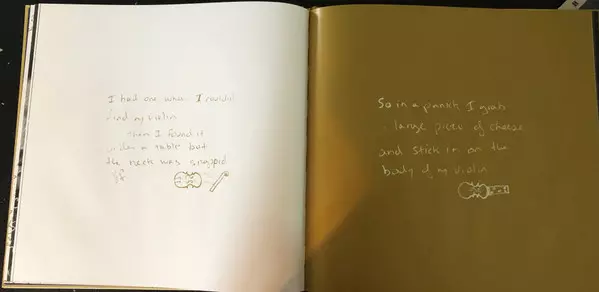 I had one when I couldnt
find my violin
then I found it
under a table but
the neck was snapped
off
So in a panick I grab
a large piece of cheese
and stick in on the
body of my violin